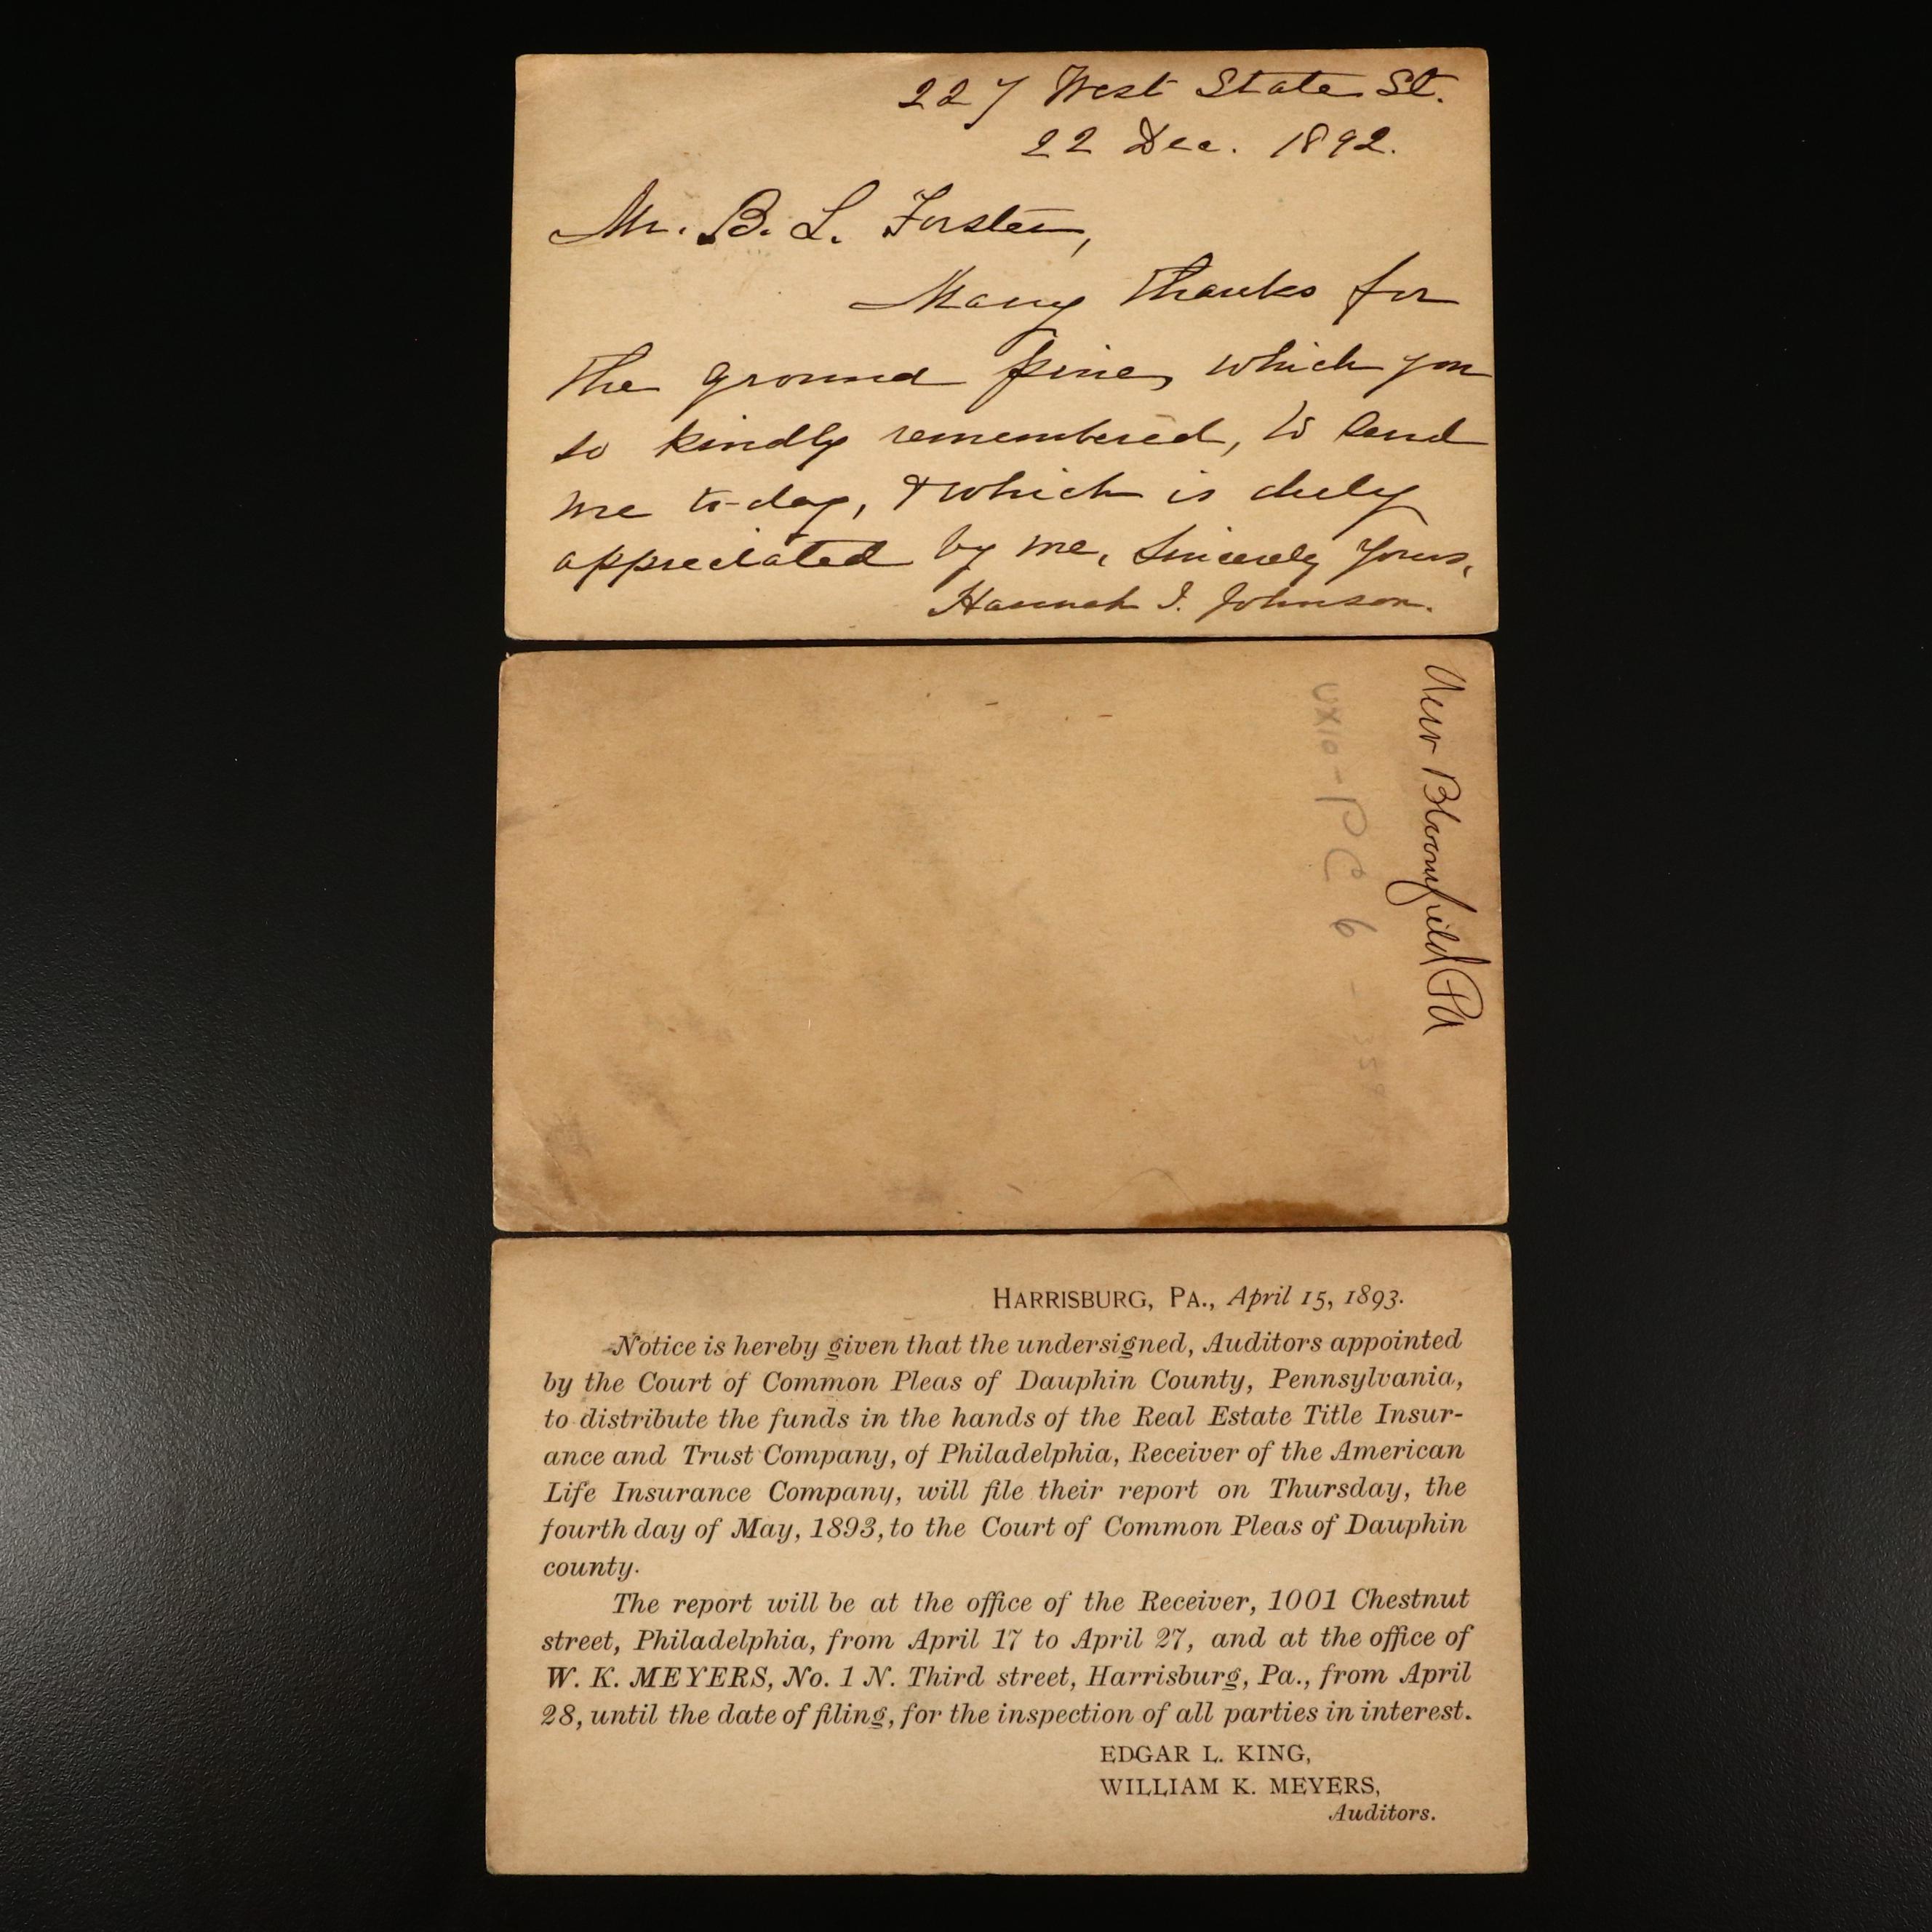 227 West State St.
22 Dec. 1892.
Mr. B. L. Forster,
Many thanks for
the ground pine, which you
so kindly remembered, to send
me to-day, & which is duly
appreciated by me, Sincerely Yours,
Hannah I. Johnson.
New Bloomfield Pa
UX10-PC 6
HARRISBURG, PA., April 15, 1893.
Notice is hereby given that the undersigned, Auditors appointed
by the Court of Common Pleas of Dauphin County, Pennsylvania,
to distribute the funds in the hands of the Real Estate Title Insur-
ance and Trust Company, of Philadelphia, Receiver of the American
Life Insurance Company, will file their report on Thursday, the
fourth day of May, 1893, to the Court of Common Pleas of Dauphin
county.
The report will be at the office of the Receiver, 1001 Chestnut
street, Philadelphia, from April 17 to April 27, and at the office of
W. K. MEYERS, No. 1 N. Third street, Harrisburg, Pa., from April
28, until the date of filing, for the inspection of all parties in interest.
EDGAR L. KING,
WILLIAM K. MEYERS,
Auditors.